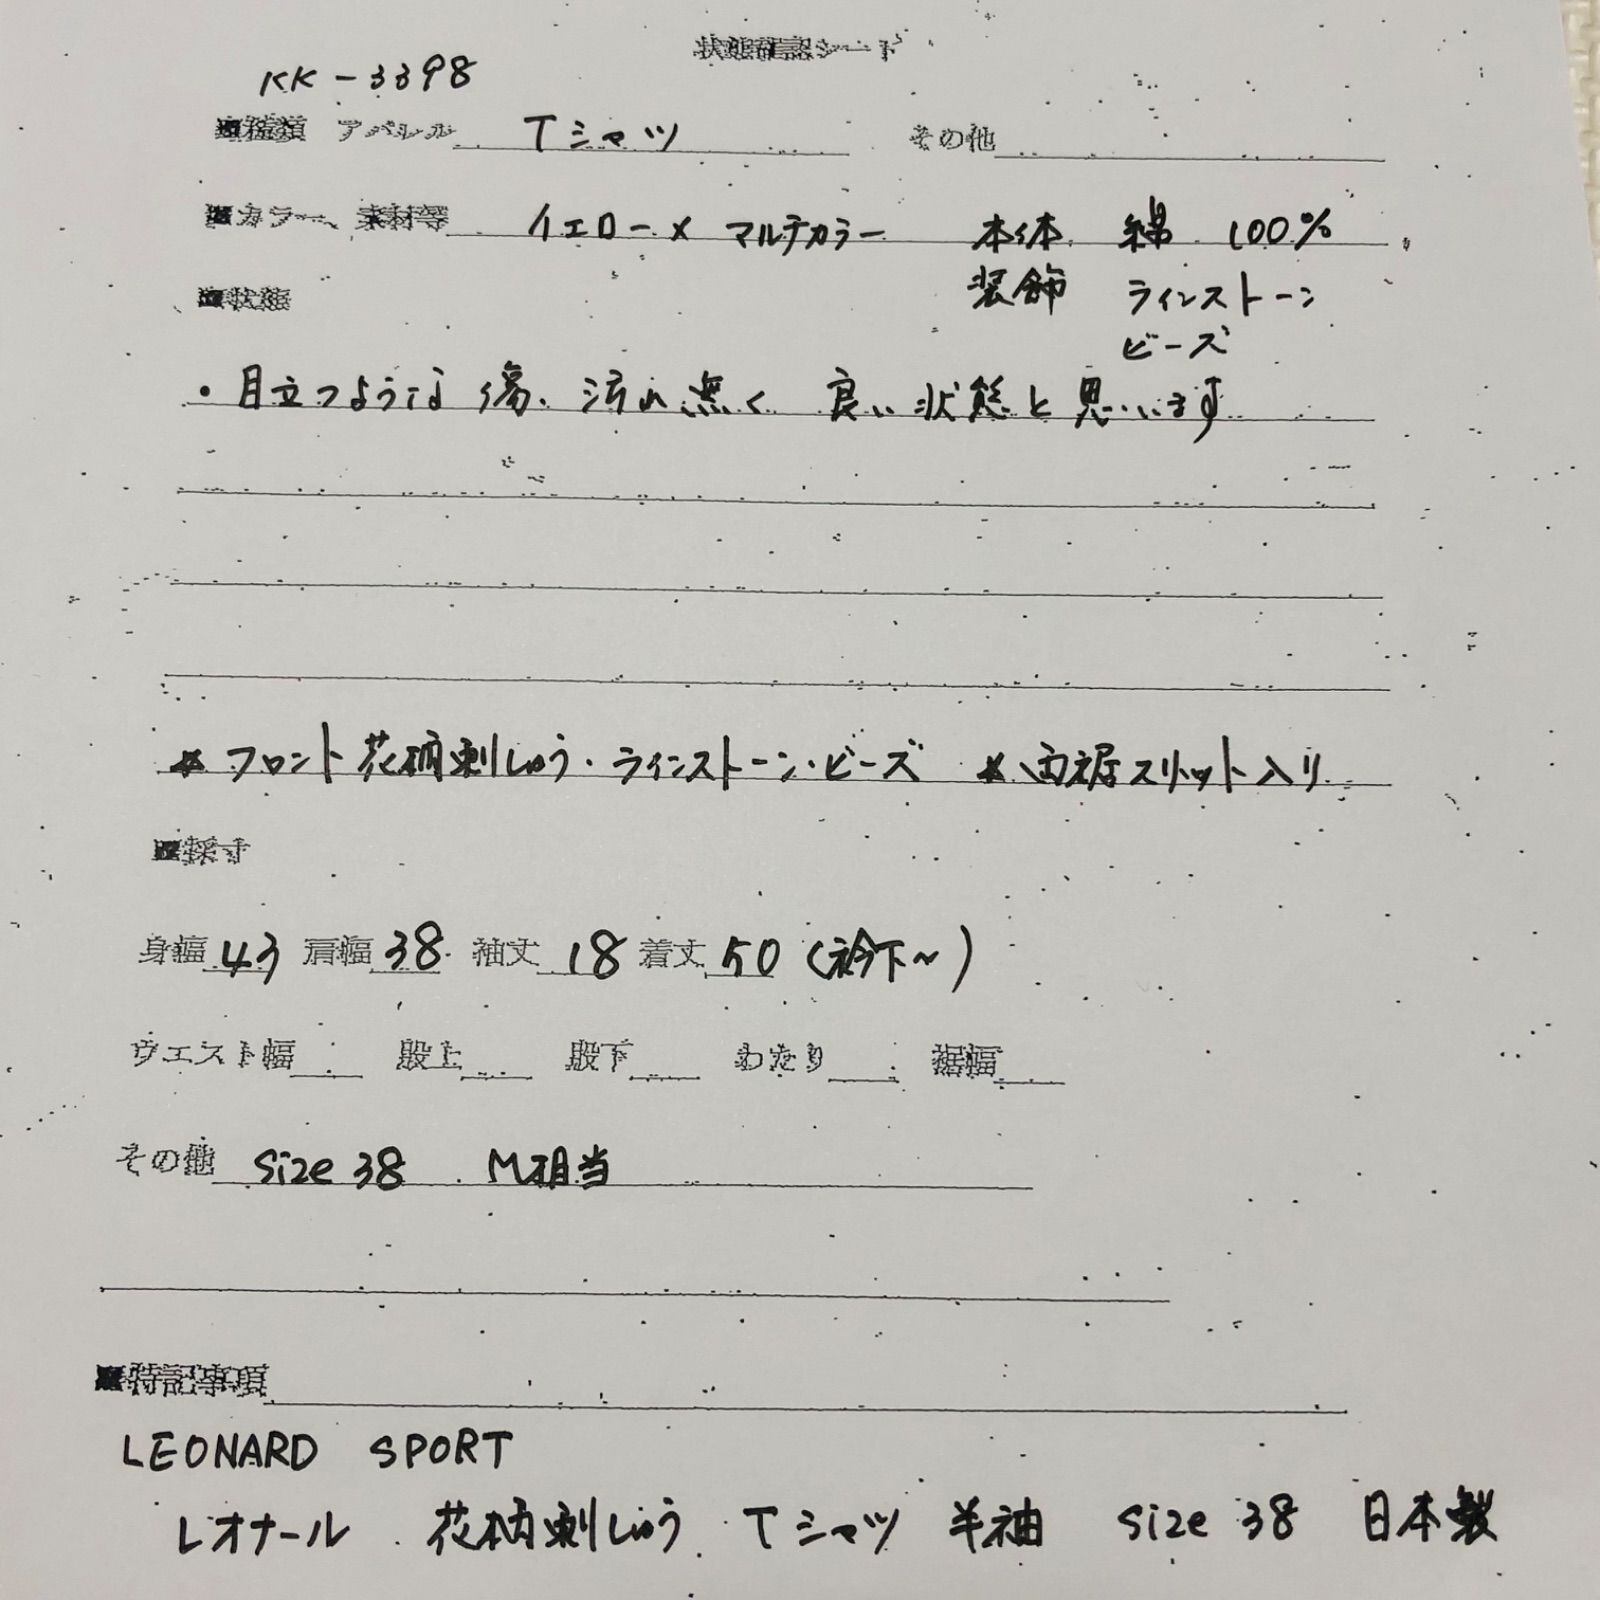 状態確認シート
KK-3398
■種類 アパレル Tシャツ その他
■カラー、素材等 イエロー×マルチカラー 本体 綿 100%
装飾 ラインストーン
ビーズ
■状態
・目立つような傷、汚れ無く 良い状態と思います
*フロント花柄刺しゅう・ラインストーン・ビーズ *両裾スリット入り
■採寸
身幅 43 肩幅 38 袖丈 18 着丈 50 (衿下~)
ウエスト幅 股上 股下 わたり 裾幅
その他 size 38 M相当
■特記事項
LEONARD SPORT
レオナール 花柄刺しゅう Tシャツ 半袖 size 38 日本製